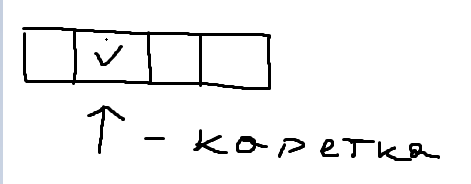 V
↑ - каретка